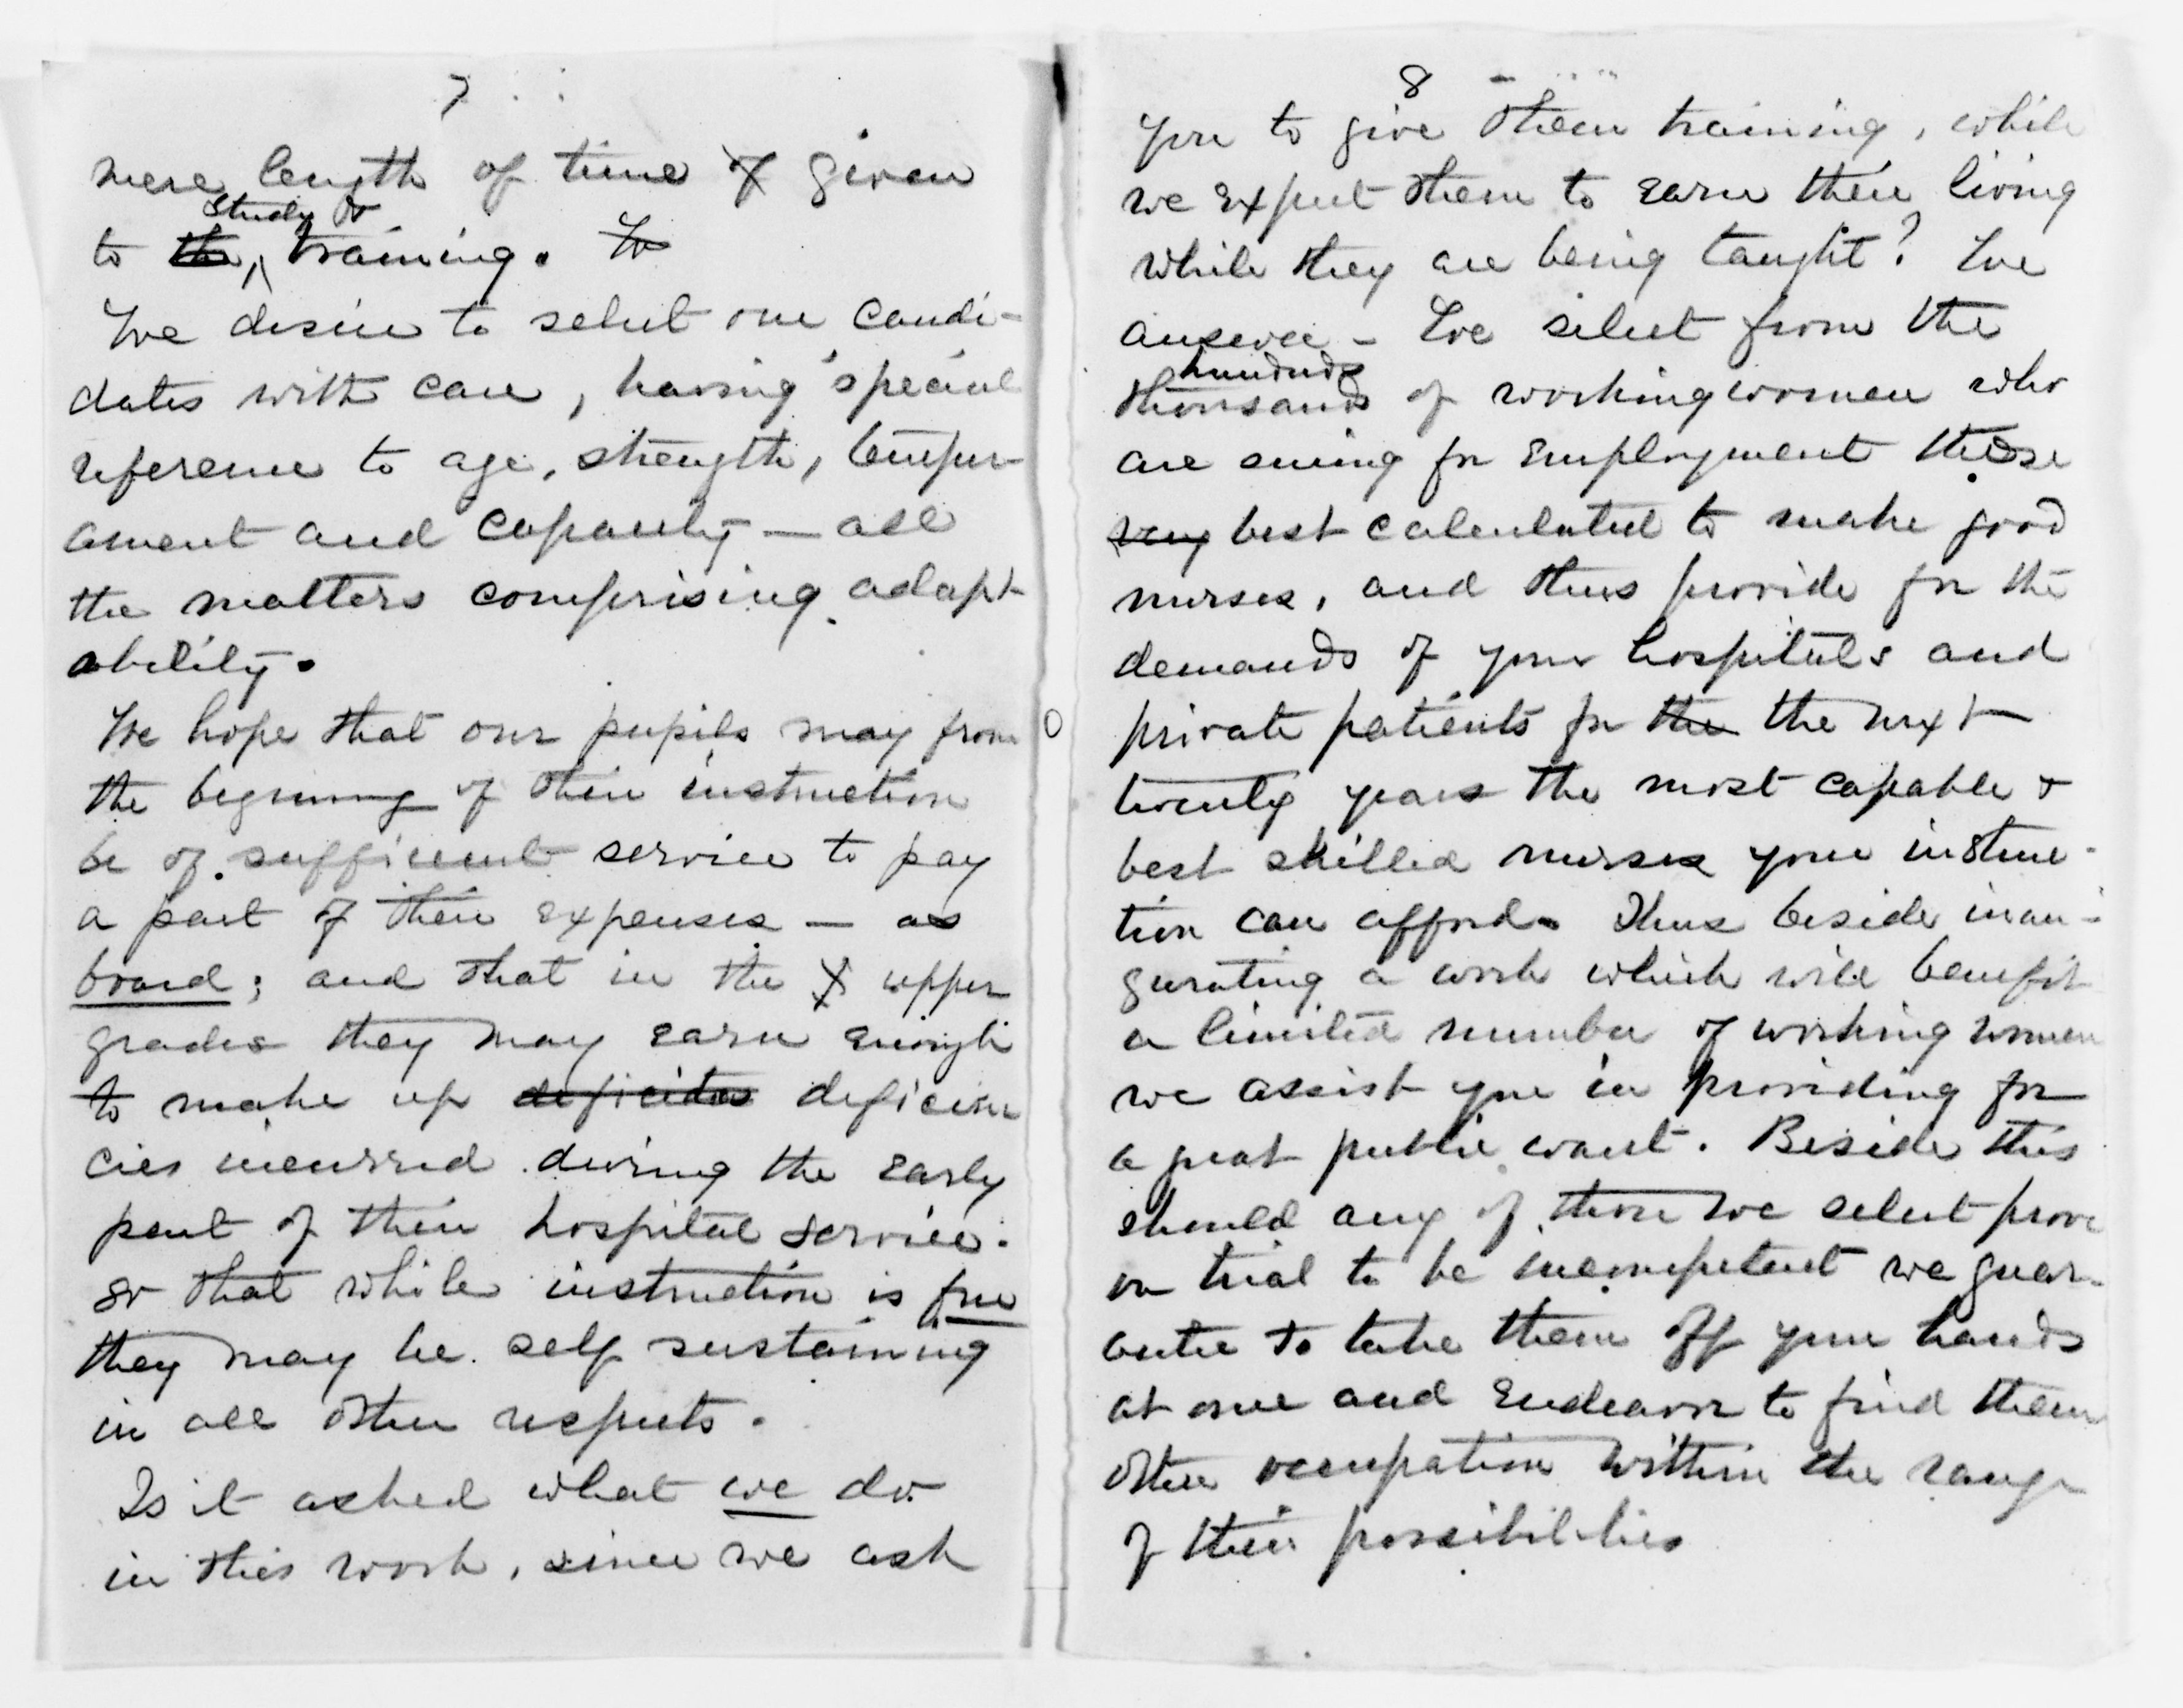 7
mere length of time given
study &
to the, training. We
We desire to select our candi-
dates with care, having special
reference to age, strength, temper-
ament and capacity — all
the matters comprising adapt-
ability.
We hope that our pupils may from
the begining of their instruction
be of sufficient service to pay
a part of their expenses — as
board; and that in the upper
grades they may earn enough
to make up deficites deficien
cies incurred during the early
part of their hospital service.
so that while instruction is free
they may be self sustaining
in all other respects.
Is it asked what we do
in this work, since we ask
8
you to give them training, while
we expect them to earn their living
while they are being taught? We
answer - We select from the
hundreds
thousands of workingwomen who
are suing for employment those
very best calculated to make good
nurses, and thus provide for the
demands of your hospitals and
private patients for the the next
twenty years the most capable &
best skilled nurses your instruc-
tion can afford. Thus beside inau-
gurating a work which will benefit
a limited number of working women
we assist you in providing for
a great public want. Beside this
should any of those we select prove
on trial to be incompetent we guar-
antee to take them off your hands
at once and endeavor to find them
other occupation within the range
of their possibilities